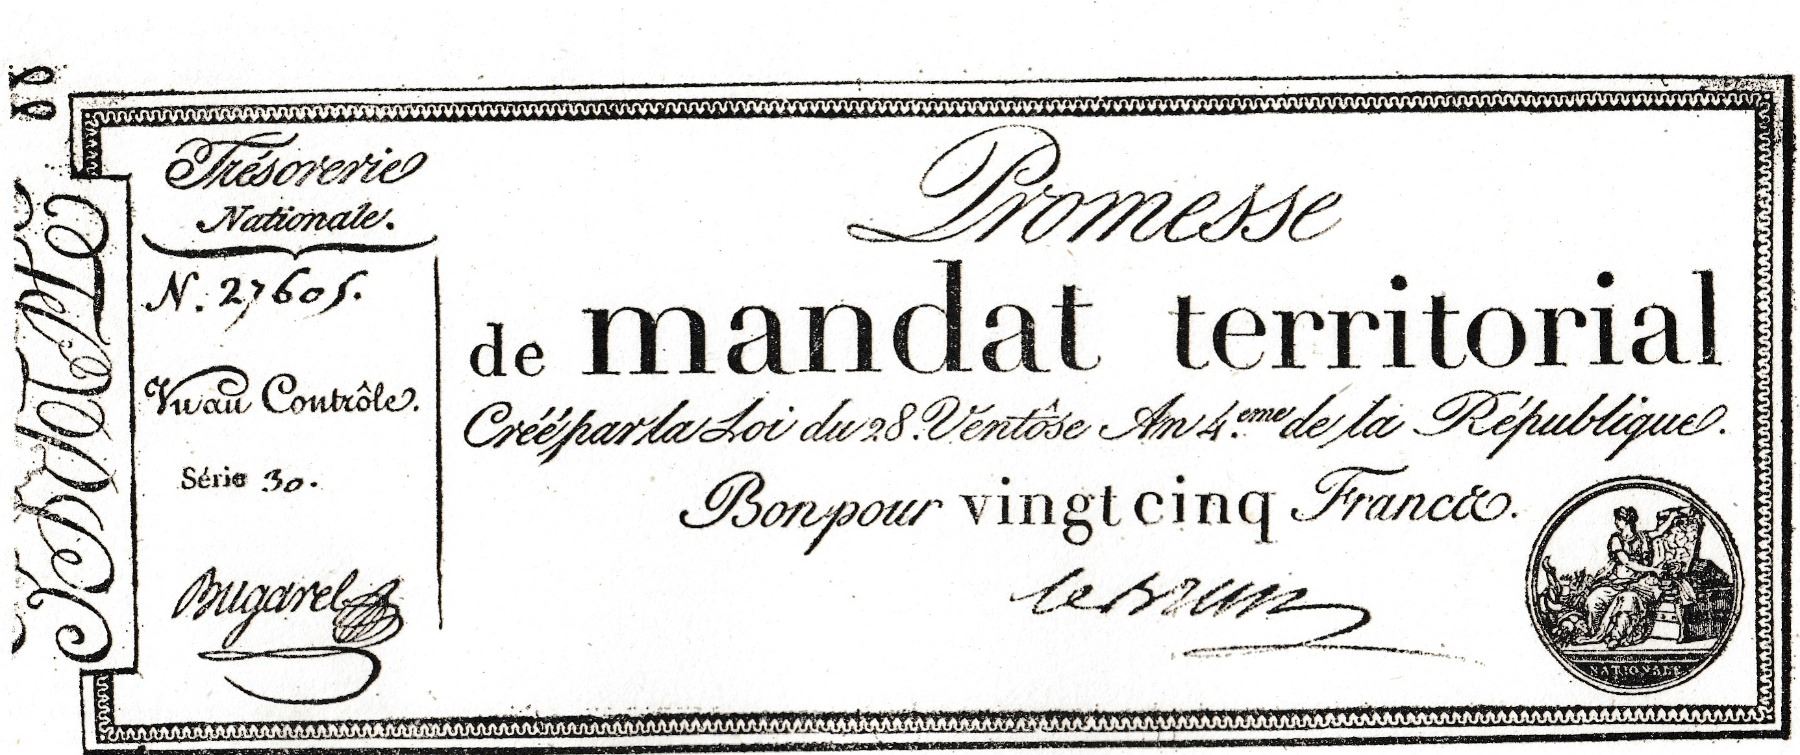 Trésorerie
Nationale.
N. 27605.
Vu au Contrôle.
Série 30.
Bugarel
Promesse
de mandat territorial
Créé par la Loi du 28. Ventôse An 4.eme de la République.
Bon pour vingt cinq Francs.
lebrun
NATIONALE